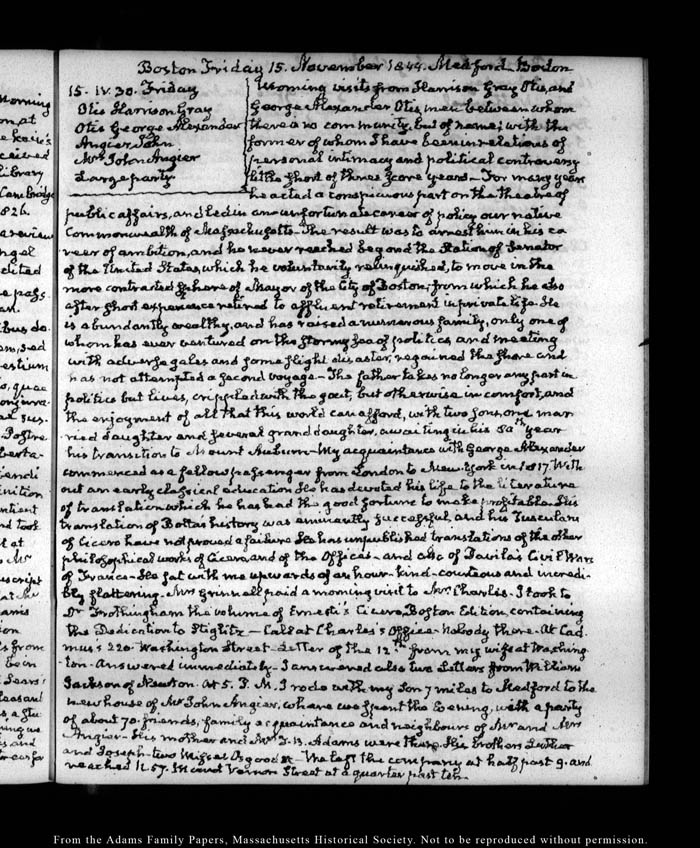 Boston Friday 15. November 1844. Medford Boston
15. IV. 30. Friday
Otis Harrison Gray
Otis George Alexander
Angier John
Mrs John Angier
Large party
Morning visits from Harrison Gray Otis, and
George Alexander Otis, men between whom
there is no community, but of name; with the
former of whom I have been in relations of
personal intimacy and political controversy
little short of three score years - For many years
he acted a conspicuous part on the theatre of
public affairs, and led in an unfortunate career of policy our native
Commonwealth of Massachusetts. The result was to arrest him in his ca
reer of ambition, and he never reached beyond the Station of Senator
of the United States, which he voluntarily relinquished, to move in the
more contracted sphere of Mayor of the City of Boston; from which he also
after short experience retired to affluent retirement in private life. He
is abundantly wealthy, and has raised a numerous family, only one of
whom has ever ventured on the stormy sea of politics and meeting
with adverse gales and some slight disaster, regained the shore and
has not attempted a second voyage - The father takes no longer any part in
politics but lives, crippled with the gout, but otherwise in comfort, and
the enjoyment of all that this world can afford, with two sons, one mar
ried daughter and several grand daughters, awaiting in his 80th year
his transition to Mount Auburn - My acquaintance with George Alexander
commenced as a fellow passenger from London to New-York in 1817. With
out an early classical education he has devoted his life to the literature
of translation which he has had the good fortune to make profitable. His
translation of Botta's history was eminently successful, and his Tusculan
of Cicero have not proved a failure. He has unpublished translations of the other
philosophical works of Cicero, and of the Offices - and also of Davila's Civil Wars
of France - He sat with me upwards of an hour - kind - courteous and incredi-
bly flattering. Mrs Grinnell paid a morning visit to Mrs Charles. I took to
Dr Frothingham the volume of Ernesti's Cicero, Boston Edition, containing
the Dedication to Stiglitz - Call at Charles's Office - Nobody there. At Cad
mus's 220. Washington Street. Letter of the 12th from my wife at Washing
ton - Answered immediately - I answered also two Letters from William
Jackson of Newton. At 5. P.M. I rode with my Son 7 miles to Medford to the
new house of Mr John Angier, where we spent the Evening, with a party
of about 70. friends, family acquaintance and neighbours of Mr and Mrs
Angier - His mother and Mrs T. B. Adams were there. His brothers Luther
and Joseph - two Misses Osgood &c - We left the company at half past 9. and
reached N. 57. Mount Vernon Street at a quarter past ten.
From the Adams Family Papers, Massachusetts Historical Society. Not to be reproduced without permission.